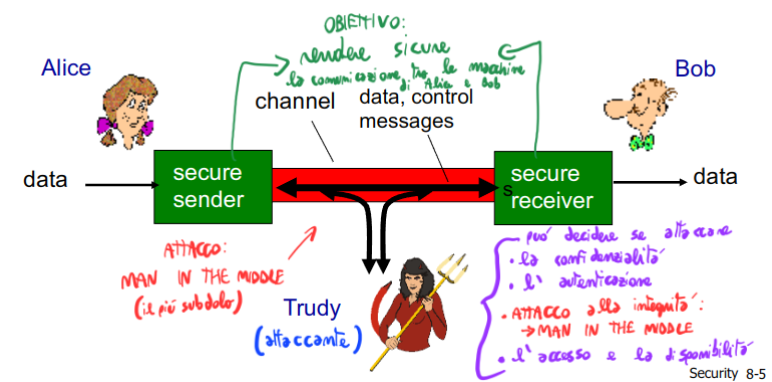 OBIETTIVO:
rendere sicure
la comunicazione tra le macchine
di Alice e Bob
Alice
Bob
channel
data, control
messages
data
secure
sender
s
secure
receiver
data
ATTACCO:
MAN IN THE MIDDLE
(il più subdolo)
Trudy
(attaccante)
può decidere se attaccare
• la confidenzialità
• l'autenticazione
• ATTACCO alla integrità:
→ MAN IN THE MIDDLE
• l'accesso e la disponibilità
Security 8-5